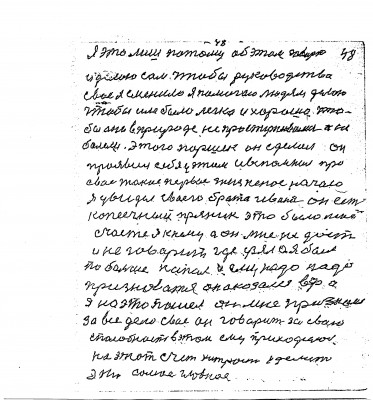 48
я это лиш потому об этом говорю 48
и делою сам чтобы руководства
свое я сменило я помогою людям делою
чтобы им было легко и хорошо что-
бы оно в природе не простуживали и не
болели. Этого порщик он сделал он
проявил себя у этом и вспомнил про
свое такие первое жизненое начало
я увидел своего брата ивана он ест
конечный пряник это было моё
счастье я к нему а он мне не дает
и не говорит где узял а я был
по больше напал и ему надо надо
призноватя он оказался вор а
я на это пошел он мне признался
за все дело свое он говорит за свою
способност в этом ему приходится
на этот счет хитрост уделит
эти самое гловное